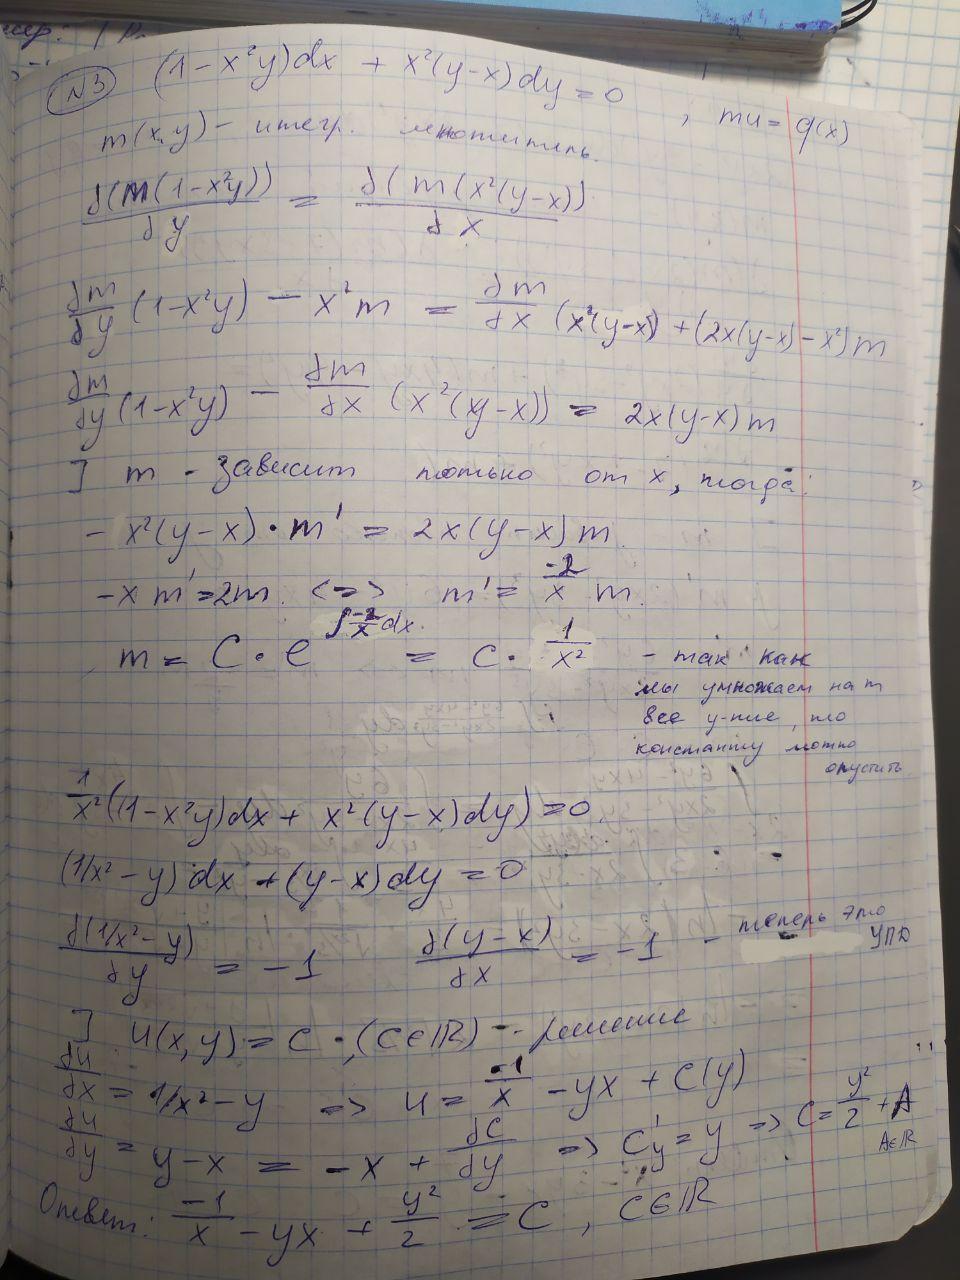 N3 (1-x²y)dx + x²(y-x)dy=0
m(x,y) - интегр. множитель. ; mu = q(x)
∂(m(1-x²y))/∂y = ∂(m(x²(y-x))/∂x
∂m/∂y (1-x²y) - x²m = ∂m/∂x (x²(y-x)) + (2x(y-x)-x²)m
∂m/∂y (1-x²y) - ∂m/∂x (x²(y-x)) = 2x(y-x)m
] m - зависит только от x, тогда:
-x²(y-x)·m' = 2x(y-x)m.
-x m'=2m. <=> m' = -2/x m.
m = C·e^∫-2/x dx = C·1/x² - так как
мы умножаем на m
все у-ние, то
константу можно
опустить.
1/x²((1-x²y)dx + x²(y-x)dy)=0.
(1/x²-y)dx + (y-x)dy=0
∂(1/x²-y)/∂y = -1 ∂(y-x)/∂x = -1 - теперь это
УПД
] u(x,y) = C ,(C∈ℝ) - решение
∂u/∂x = 1/x²-y => u = -1/x - yx + C(y)
∂u/∂y = y-x = -x + ∂C/∂y => C'y = y => C = y²/2 + A
A∈ℝ
Ответ: -1/x - yx + y²/2 = C , C∈ℝ